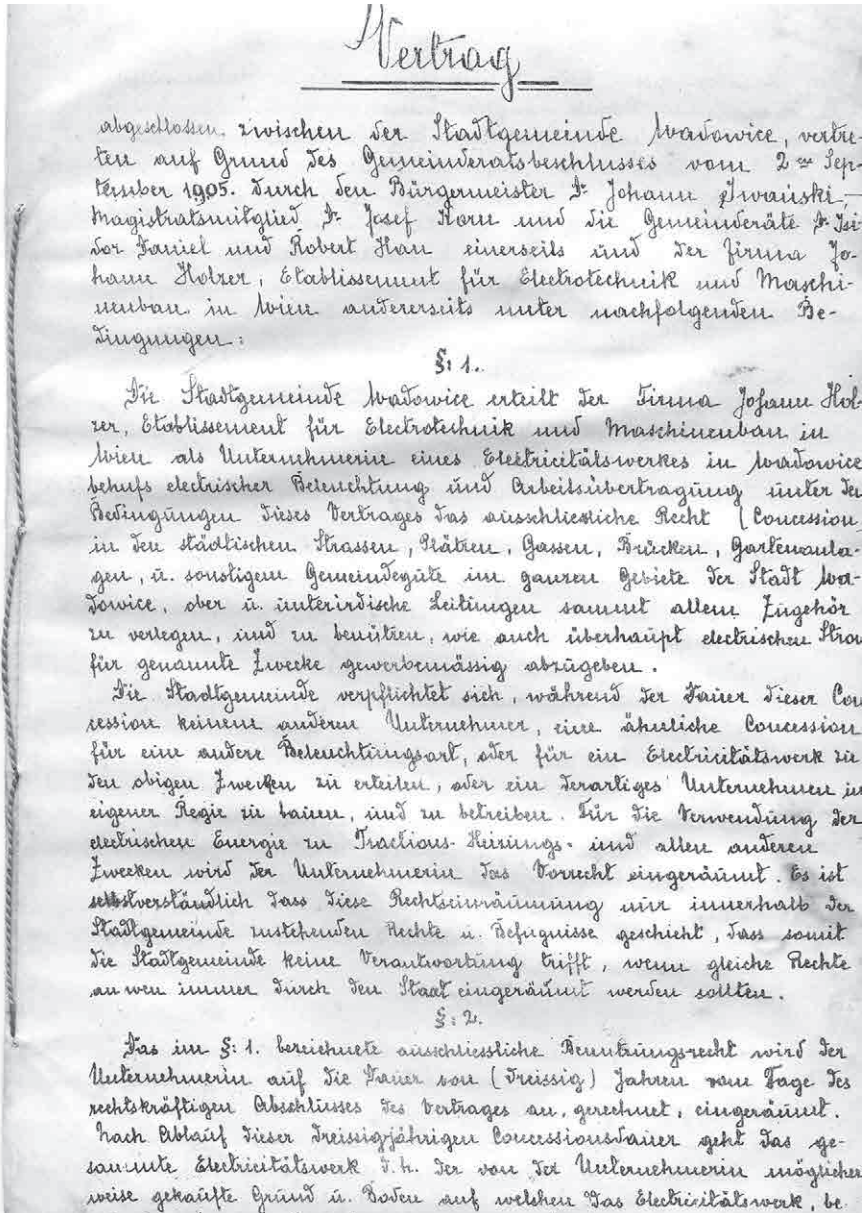 Vertrag
abgeschlossen, zwischen der Stadtgemeinde Wadowice, vertre-
ten auf Grund des Gemeinderatsbeschlusses vom 2ten Sep-
tember 1905. durch den Bürgermeister Dr. Johann Iwański,
Magistratsmitglied Dr. Josef Korn und die Gemeinderäte Dr. Isi-
dor Daniel und Robert Hau einerseits und der Firma Jo-
hann Holzer, Etablissement für Electrotechnik und Maschi-
nenbau in Wien andererseits unter nachfolgenden Be-
dingungen:
§: 1.
Die Stadtgemeinde Wadowice erteilt der Firma Johann Hol-
zer, Etablissement für Electrotechnik und Maschinenbau in
Wien als Unternehmerin eines Electricitätswerkes in Wadowice
behufs electrischer Beleuchtung und Arbeitsübertragung unter den
Bedingungen dieses Vertrages das ausschliessliche Recht (Concession
in den städtischen Strassen, Plätzen, Gassen, Brücken, Gartenanla-
gen, u. sonstigem Gemeindegute im ganzen Gebiete der Stadt Wa-
dowice, ober u. unterirdische Leitungen sammt allem Zugehör
zu verlegen, und zu benützen, wie auch überhaupt electrischen Strom
für genannte Zwecke gewerbemässig abzugeben.
Die Stadtgemeinde verpflichtet sich, während der Dauer dieser Con
cession keinem anderen Unternehmer, eine ähnliche Concession
für eine andere Beleuchtungsart, oder für ein Electricitätswerk zu
den obigen Zwecken zu erteilen, oder ein derartiges Unternehmen in
eigener Regie zu bauen, und zu betreiben. Für die Verwendung der
electrischen Energie zu Tractions- Heizungs- und allen anderen
Zwecken wird der Unternehmerin das Vorrecht eingeräumt. Es ist
selbstverständlich dass diese Rechtseinräumung nur innerhalb der
Stadtgemeinde zustehenden Rechte u. Befugnisse geschieht, dass somit
die Stadtgemeinde keine Verantwortung trifft, wenn gleiche Rechte
an wen immer durch den Staat eingeräumt werden sollten.
§: 2.
Das im §: 1. bezeichnete ausschliessliche Benutzungsrecht wird der
Unternehmerin auf die Dauer von (dreissig) Jahren vom Tage des
rechtskräftigen Abschlusses des Vertrages an, gerechnet, eingeräumt.
Nach Ablauf dieser dreissigjährigen Concessionsdauer geht das ge-
sammte Electricitätswerk d. h. der von der Unternehmerin möglicher
weise gekaufte Grund u. Boden auf welchen das Electricitätswerk, be-